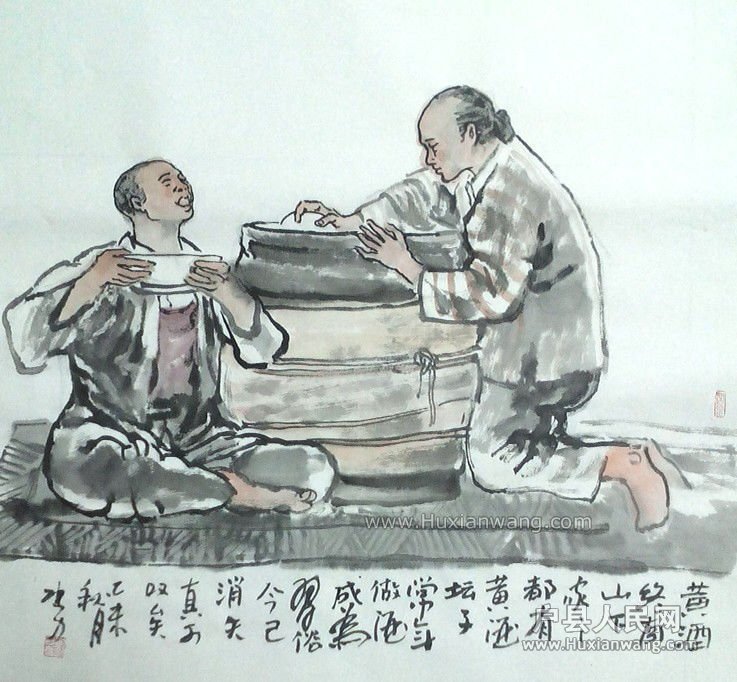 黄酒
终南
山下
家々
都有
黄酒
坛子
常年
做酒
成為
習俗
今已
消失
真可
叹矣
乙未
秋月
www.Huxianwang.com
户县人民网
www.Huxianwang.com